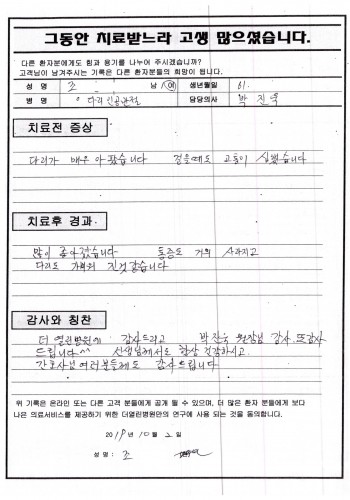 그동안 치료받느라 고생 많으셨습니다.
다른 환자분에게도 힘과 용기를 나누어 주시겠습니까?
고객님이 남겨주시는 기록은 다른 환자분들의 희망이 됩니다.
성 명 조 남/여 생년월일 61.
병 명 다리인공관절 담당의사 박진욱
치료전 증상
다리가 매우 아팠습니다 걸을때도 고통이 심했습니다
치료후 경과
많이 좋아졌습니다 통증도 거의 사라지고
다리도 가벼워 진것같습니다
감사와 칭찬
더 열린병원에 감사드리고 박진욱 원장님 감사.또감사
드립니다^^ 선생님께서도 항상 건강하시고
간호사님 여러분들께도 감사드립니다
위 기록은 온라인 또는 다른 고객 분들에게 공개 될 수 있으며, 더 많은 환자 분들에게 보다
나은 의료서비스를 제공하기 위한 더열린병원만의 연구에 사용 되는 것을 동의합니다.
2019년 10월 2일
성 명 : 조